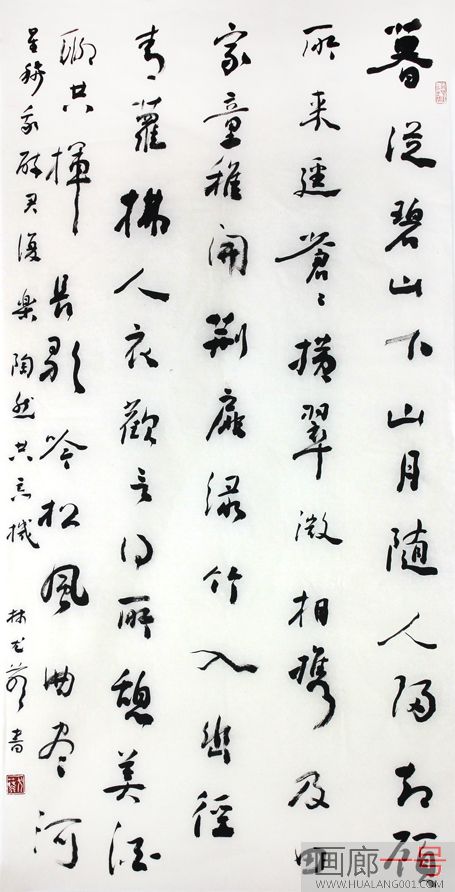 暮從碧山下山月隨人歸却顧
所來逕蒼〻橫翠微相攜及田
家童稚開荊扉綠竹入幽徑
青〻蘿拂人衣歡言得所憩美酒
聊共揮長歌吟松風曲盡河
星稀我醉君復樂陶然共忘機 林 書
画廊一号
WWW.HUALANG001.COM